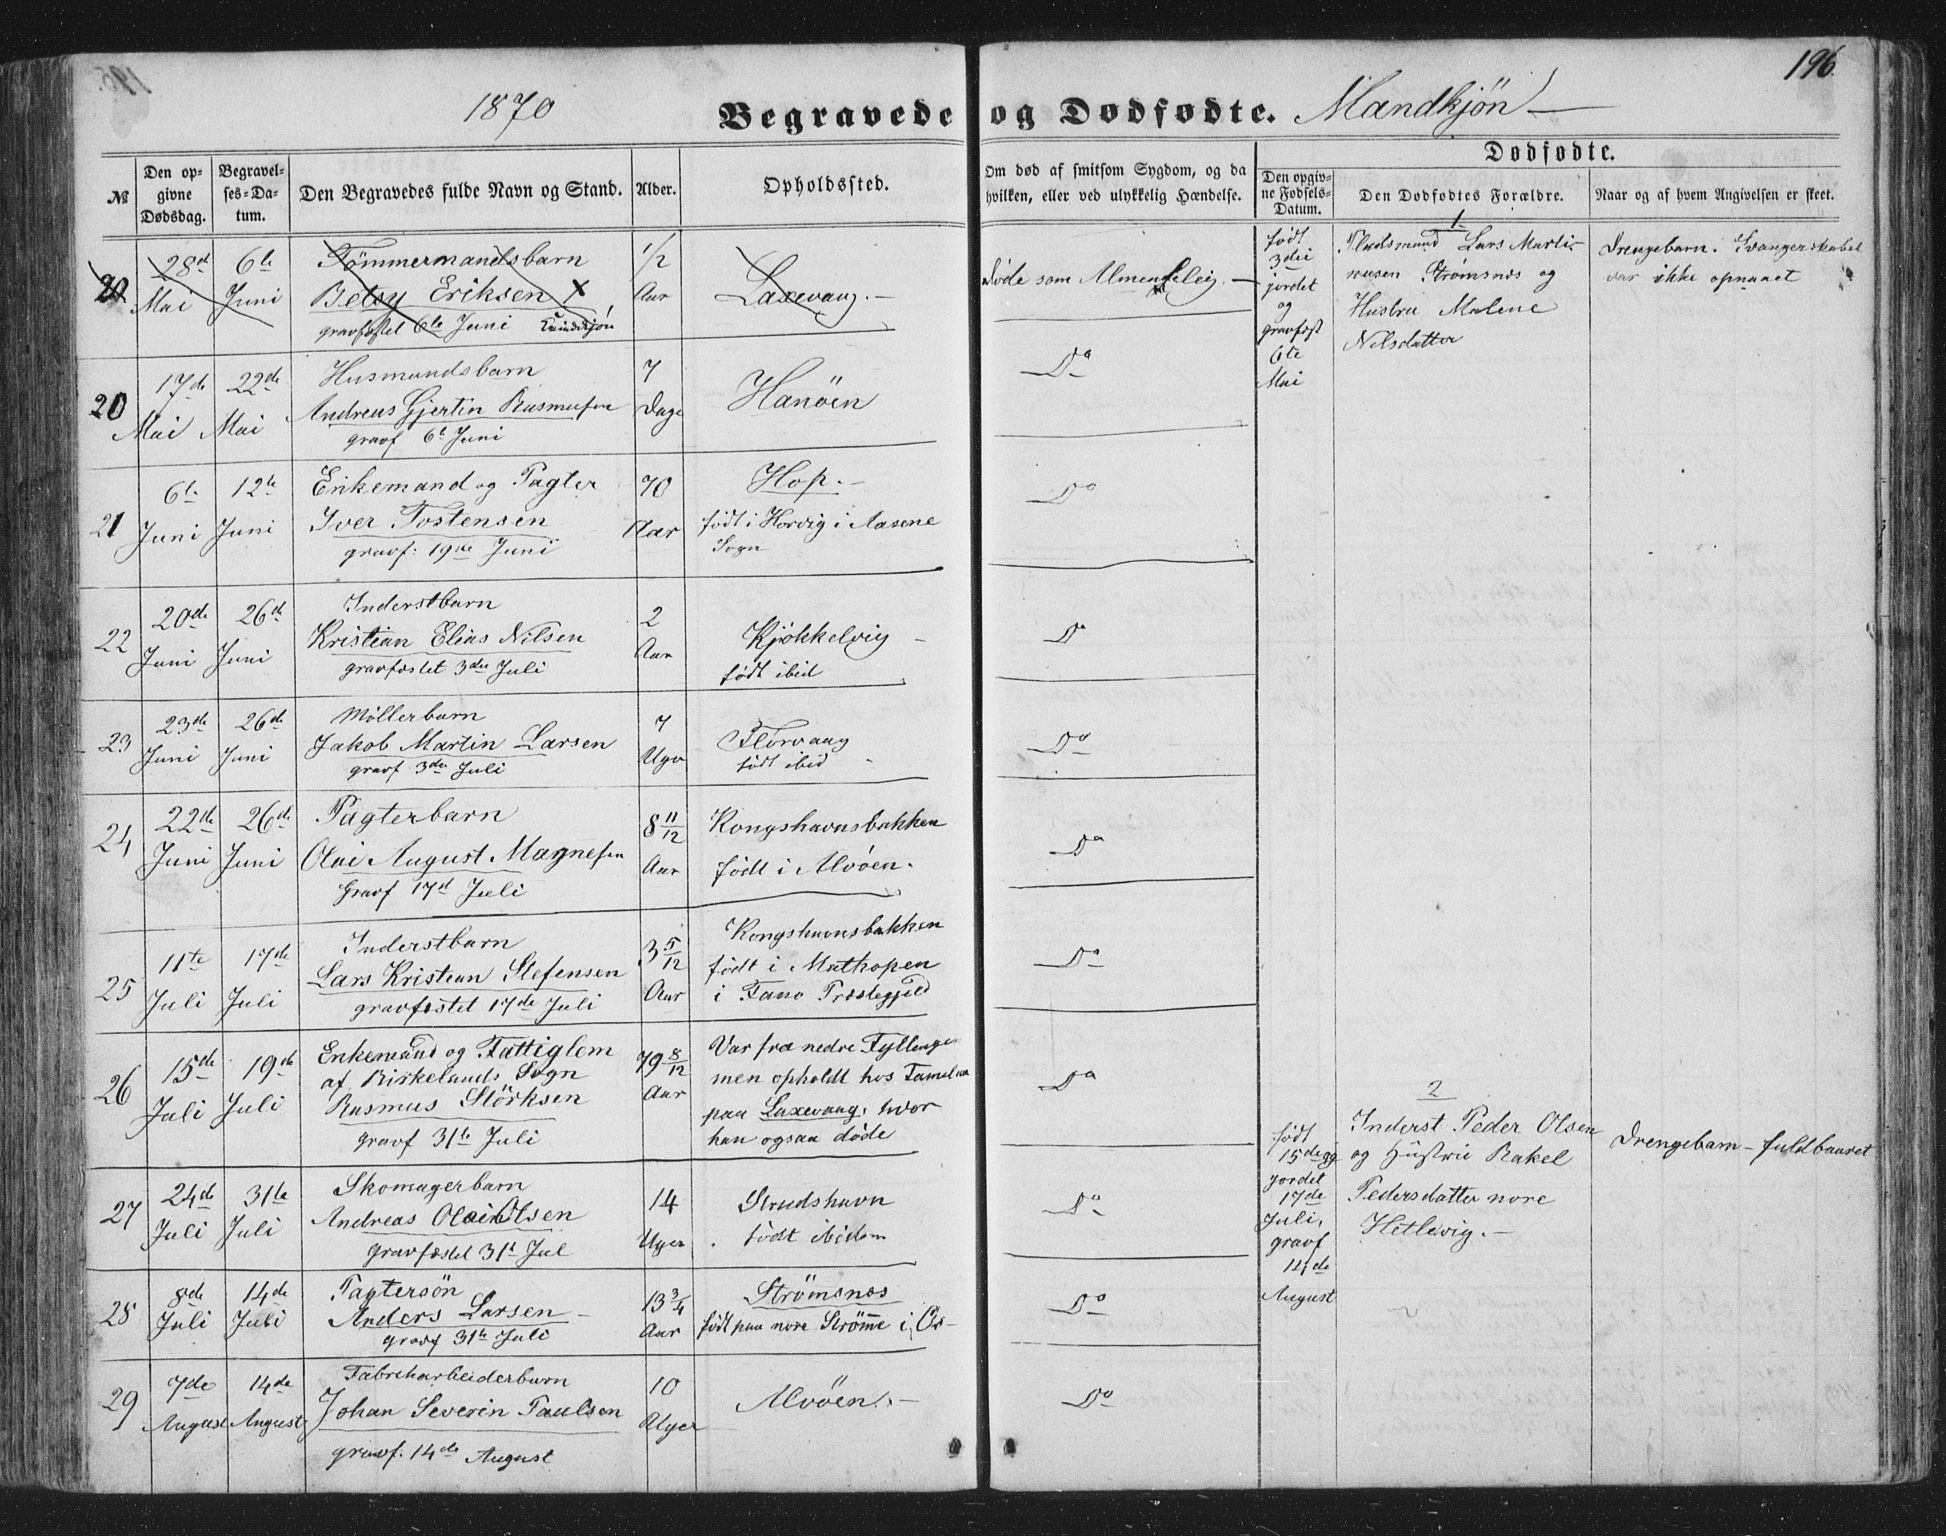 196.
1870
Begravede og Dødfødte. Mandkjön
№
Den opgivne Dødsdag.
Begravelses-Datum.
Den Begravedes fulde Navn og Stand.
Alder.
Opholdssted.
Om død af smitsom Sygdom, og da hvilken, eller ved ulykkelig Hændelse.
Dødfødte.
Den opgivne Fødsels-Datum.
Den Dødfødtes Forældre.
Naar og af hvem Angivelsen er skeet.
20 28de Mai 6te Juni
Tömmermandsbarn
Betsy Eriksen X
gravfæstet 6te Juni Kvindekjön
1/2 Aar
Laxevaag.-
Døde som Almendelig.-
20 17de Mai 22de Mai
Husmandsbarn
Andreas Gjertin Rasmusen
gravf 6t Juni
7 Dage
Hanöen
Do
21 6te Juni 12te Juni
Enkemand og Pagter
Iver Tostensen
gravf: 19de Juni
70 Aar
Hop.-
født i Horvig i Aasene
Sogn
Do
22 20de Juni 26de Juni
Inderstbarn
Kristian Elias Nilsen
gravfæstet 3die Juli
2 Aar
Kjökkelvig
født ibid
Do
23 23de Juni 26de Juni
Möllerbarn
Jakob Martin Larsen
gravf 3die Juli
7 Uger
Florvaag
født ibid
Do
24 22de Juni 26de Juni
Pagterbarn
Olai August Magnesen
Gravf 17de Juli
8 11/12 Aar
Kongshavnsbakken
født i Alvøen.
Do
25 11te Juli 17de Juli
Inderstbarn
Lars Kristian Stefensen
gravfæstet 17de Juli
3 5/12 Aar
Kongshavnsbakken
født i Mathopen
i Fano Præstegjeld
Do
26 15de Juli 19de Juli
Enkemand og Fattiglem
af Birkelands Sogn
Rasmus Störksen
gravf 31te Juli
79 8/12 Aar
Var fra nedre Fyllinge
men opholdt hos Familien
paa Laxevaag, hvor
han ogsaa døde
Do
27 24de Juli 31te Juli
Skomagerbarn
Andreas Olai Olsen
gravfæstet 31t Jul
14 Uger
Strudshavn
født ibidem
Do
28 8de Juli 14de Juli
Pagtersön
Anders Larsen
gravf 31te Juli
13 3/4 Aar
Strömsnæs
født paa nore Strømme i Os-
Do
29 7de August 14de August
Fabrikarbeiderbarn
Johan Severin Paulsen
gravf. 14de August
10 Uger
Alvöen.-
Do
1
født
3die
jordet
og
gravfæst
6te
Mai
Pladsmand Lars Marti-
nusen Strømsnæs og
Hustru Malene
Nilsdatter
Drengebarn. Svangerskabet
var ikke opnaaet
2
født
15de og
jordet
17de
Juli,
gravf
14de
August
Inderst Peder Olsen
og Hustru Rakel
Pedersdatter nore
Hetlevig.-
Drengebarn - fuldbaaret